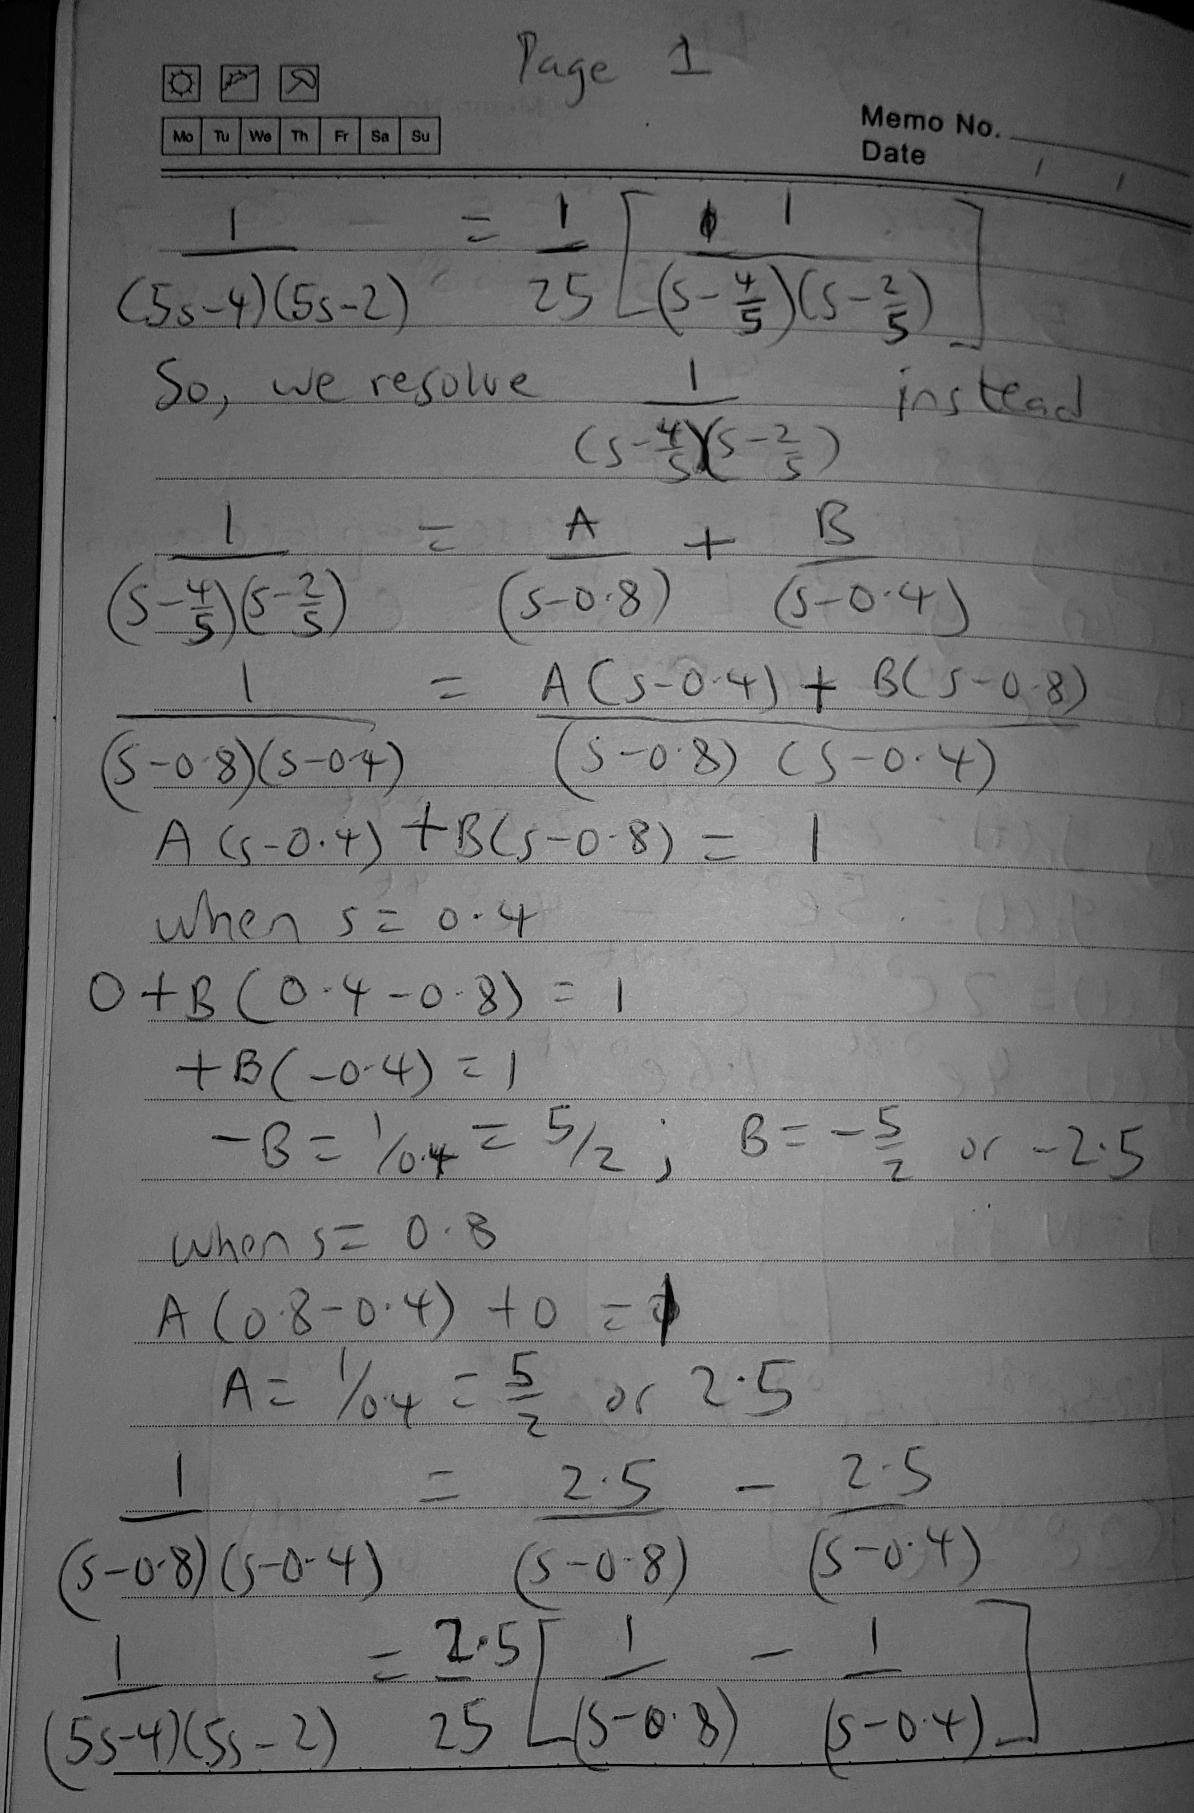 Page 1
Mo Tu We Th Fr Sa Su
Memo No.
Date / /
1/((5s-4)(5s-2)) = 1/25 [1/((s-4/5)(s-2/5))]
So, we resolve 1/((s-4/5)(s-2/5)) instead
1/((s-4/5)(s-2/5)) = A/(s-0.8) + B/(s-0.4)
1/((s-0.8)(s-0.4)) = (A(s-0.4) + B(s-0.8))/((s-0.8)(s-0.4))
A(s-0.4) + B(s-0.8) = 1
when s = 0.4
0 + B(0.4-0.8) = 1
+B(-0.4) = 1
-B = 1/0.4 = 5/2; B = -5/2 or -2.5
when s = 0.8
A(0.8-0.4) + 0 = 1
A = 1/0.4 = 5/2 or 2.5
1/((s-0.8)(s-0.4)) = 2.5/(s-0.8) - 2.5/(s-0.4)
1/((5s-4)(5s-2)) = 2.5/25 [1/(s-0.8) - 1/(s-0.4)]